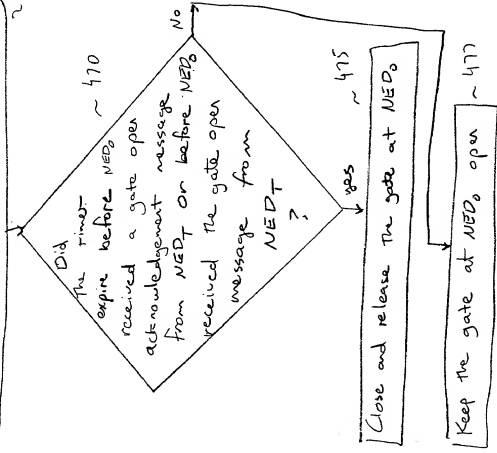 Did
The timer
expire before NEDO
received a gate open
acknowledgement message
from NEDT or before NEDO
received the gate open
message from
NEDT
?
~ 470
No
yes
~ 475
Close and release the gate at NEDO
~ 477
Keep the gate at NEDO open